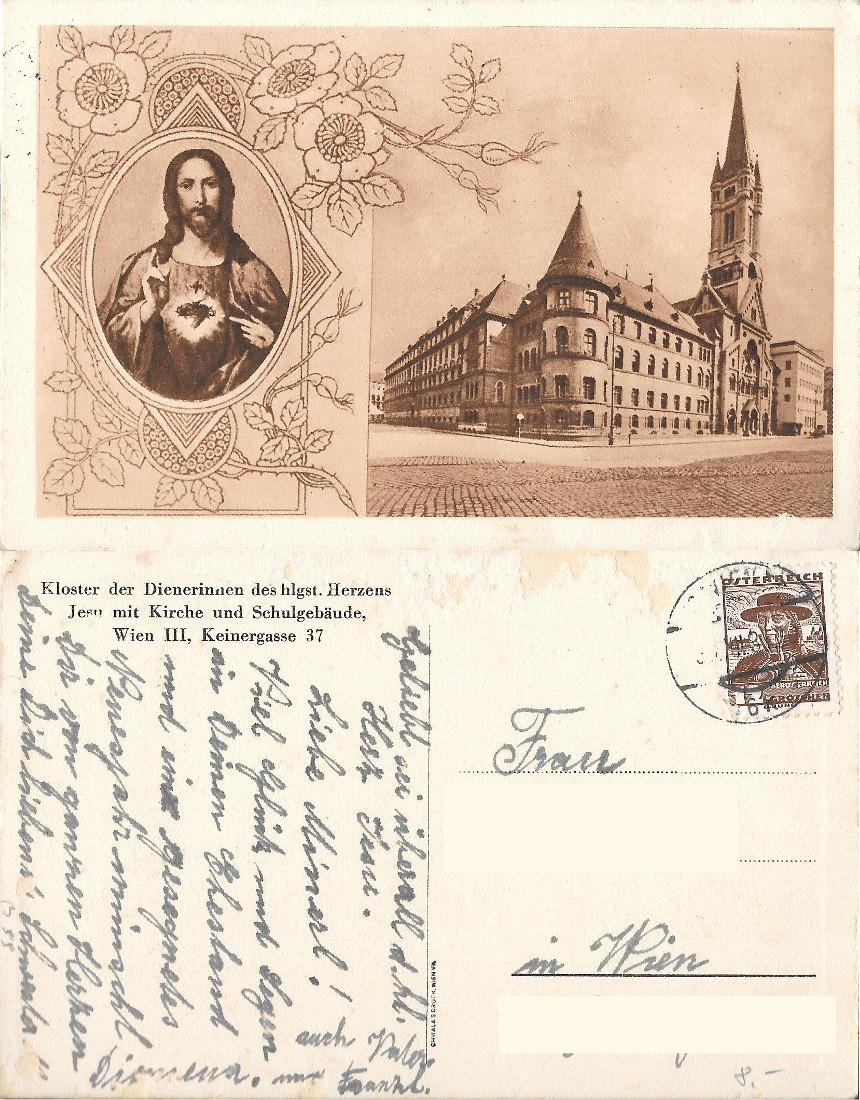 Kloster der Dienerinnen des hlgst. Herzens
Jesu mit Kirche und Schulgebäude,
Wien III, Keinergasse 37
Geliebt sei überall d. hl.
Herz Jesu.
Liebe Minerl!
Viel Glück und Segen
in Deinen Ehestand
und ein gesegnetes
Neuesjahr wünscht
Dir vom ganzen Herzen
Deine Dich liebende
auch Vater
und Franzl.
ÖSTERREICH
GROSCHEN
Frau
in Wien
CHWALA'S DRUCK, WIEN VII.
8.-